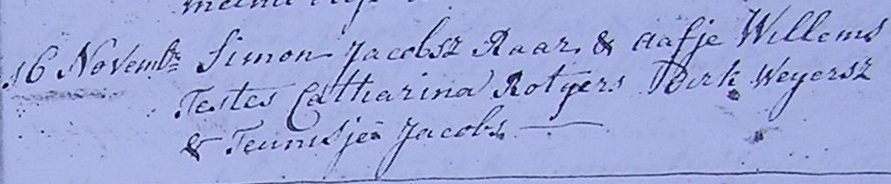 16 Novembr Simon Jacobsz Raar & Aafje Willems
Testes Catharina Rotgers Dirk Weyersz
& Teunisje Jacobs